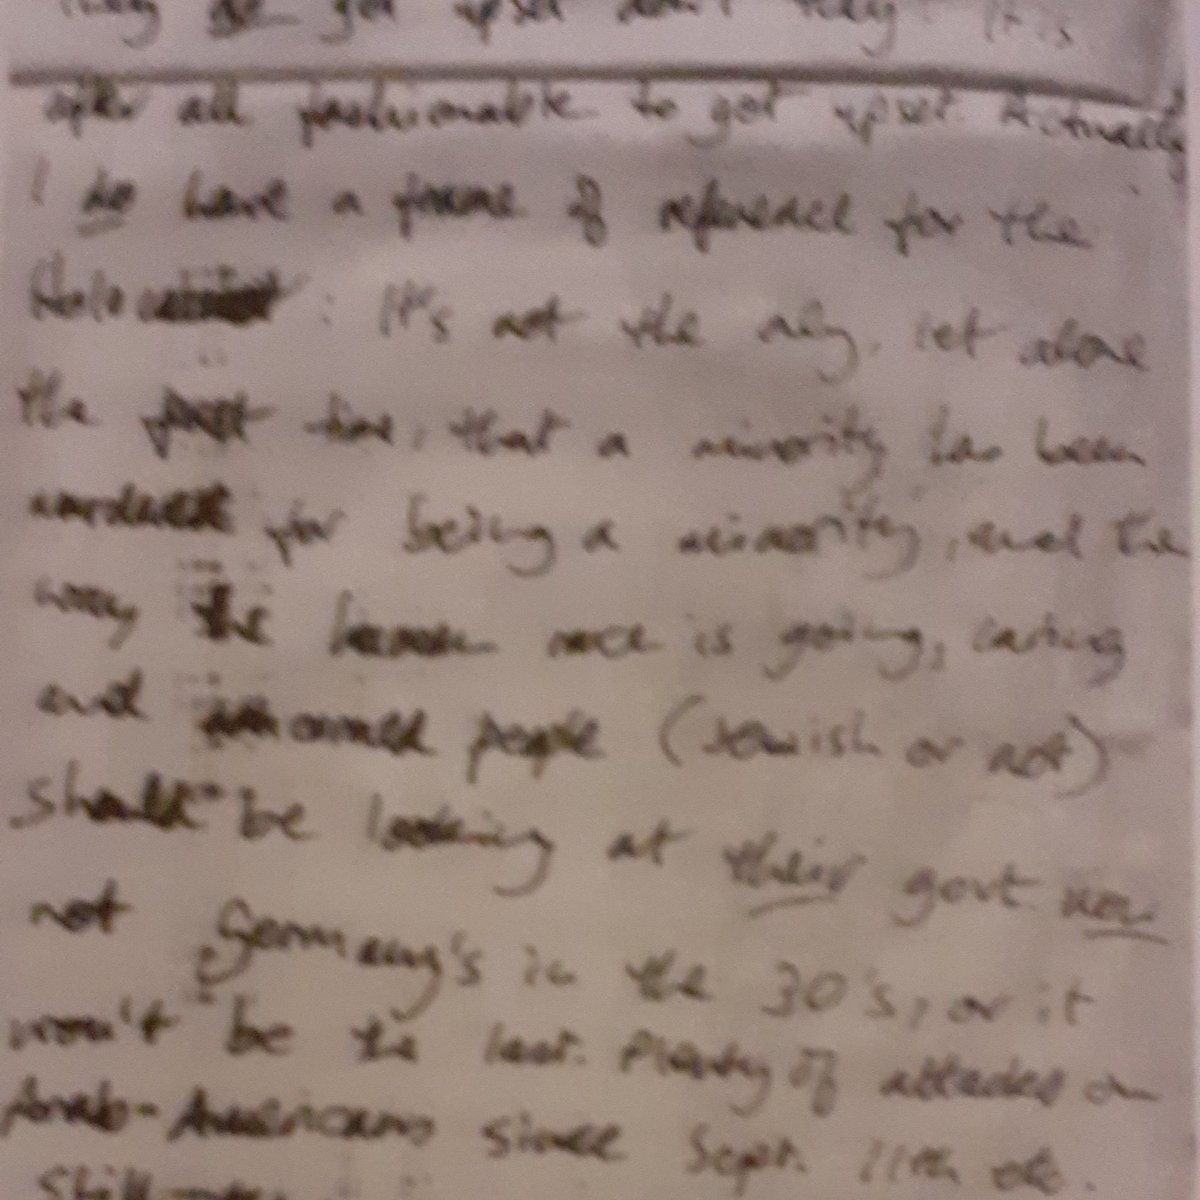 they do get upset don't they. It is
after all fashionable to get upset. Actually
I do have a frame of reference for the
Holocaust: It's not the only, let alone
the first time, that a minority has been
murdered for being a minority, and the
way the human race is going, caring
and concerned people (Jewish or not)
should be looking at their govt now
not Germany's in the 30's, or it
won't be the last. Plenty of attacks on
Arab-Americans since Sept. 11th etc.
Still